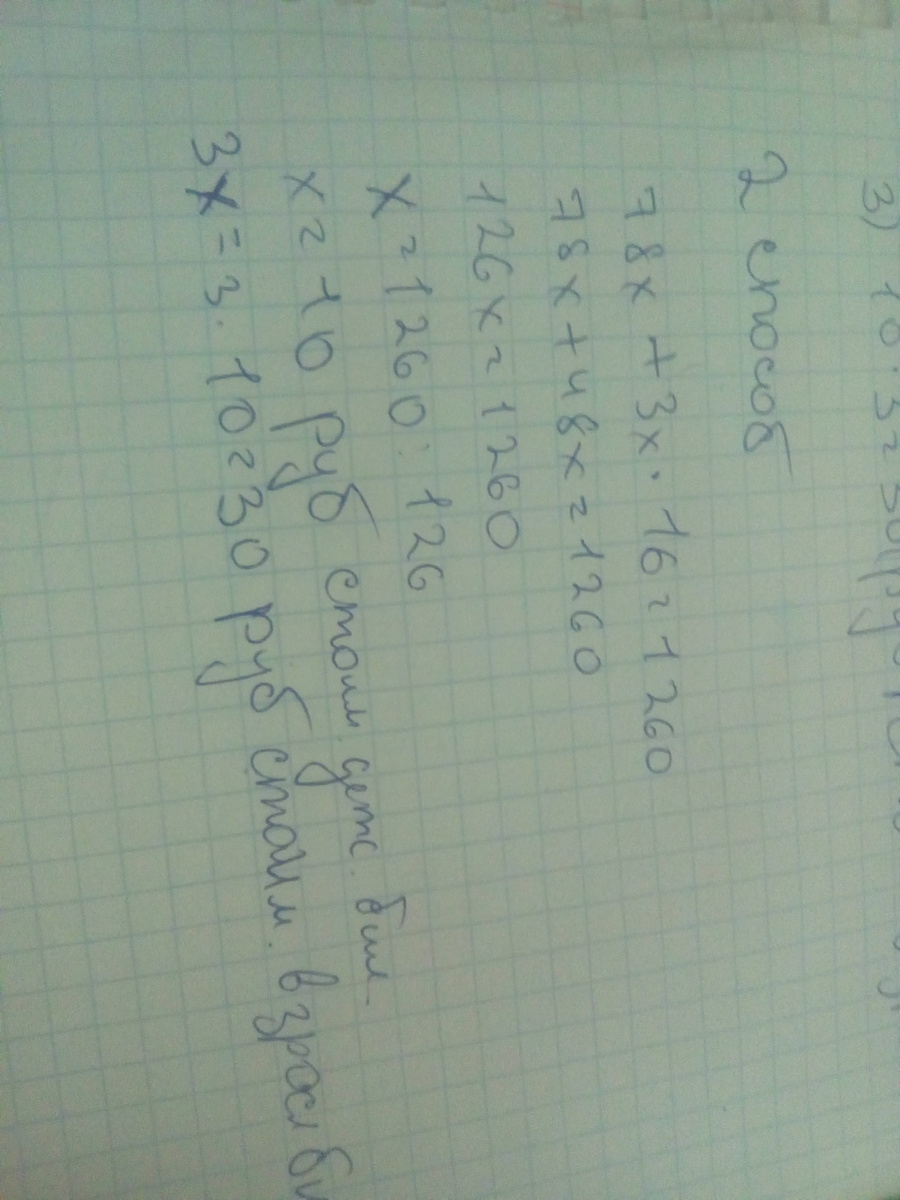 3) 10·3=30(руб)
2 способ
78x + 3x · 16 = 1260
78x + 48x = 1260
126x = 1260
x = 1260 : 126
x = 10 руб стоим. детс. бил.
3x = 3 · 10 = 30 руб стоим. взросл би